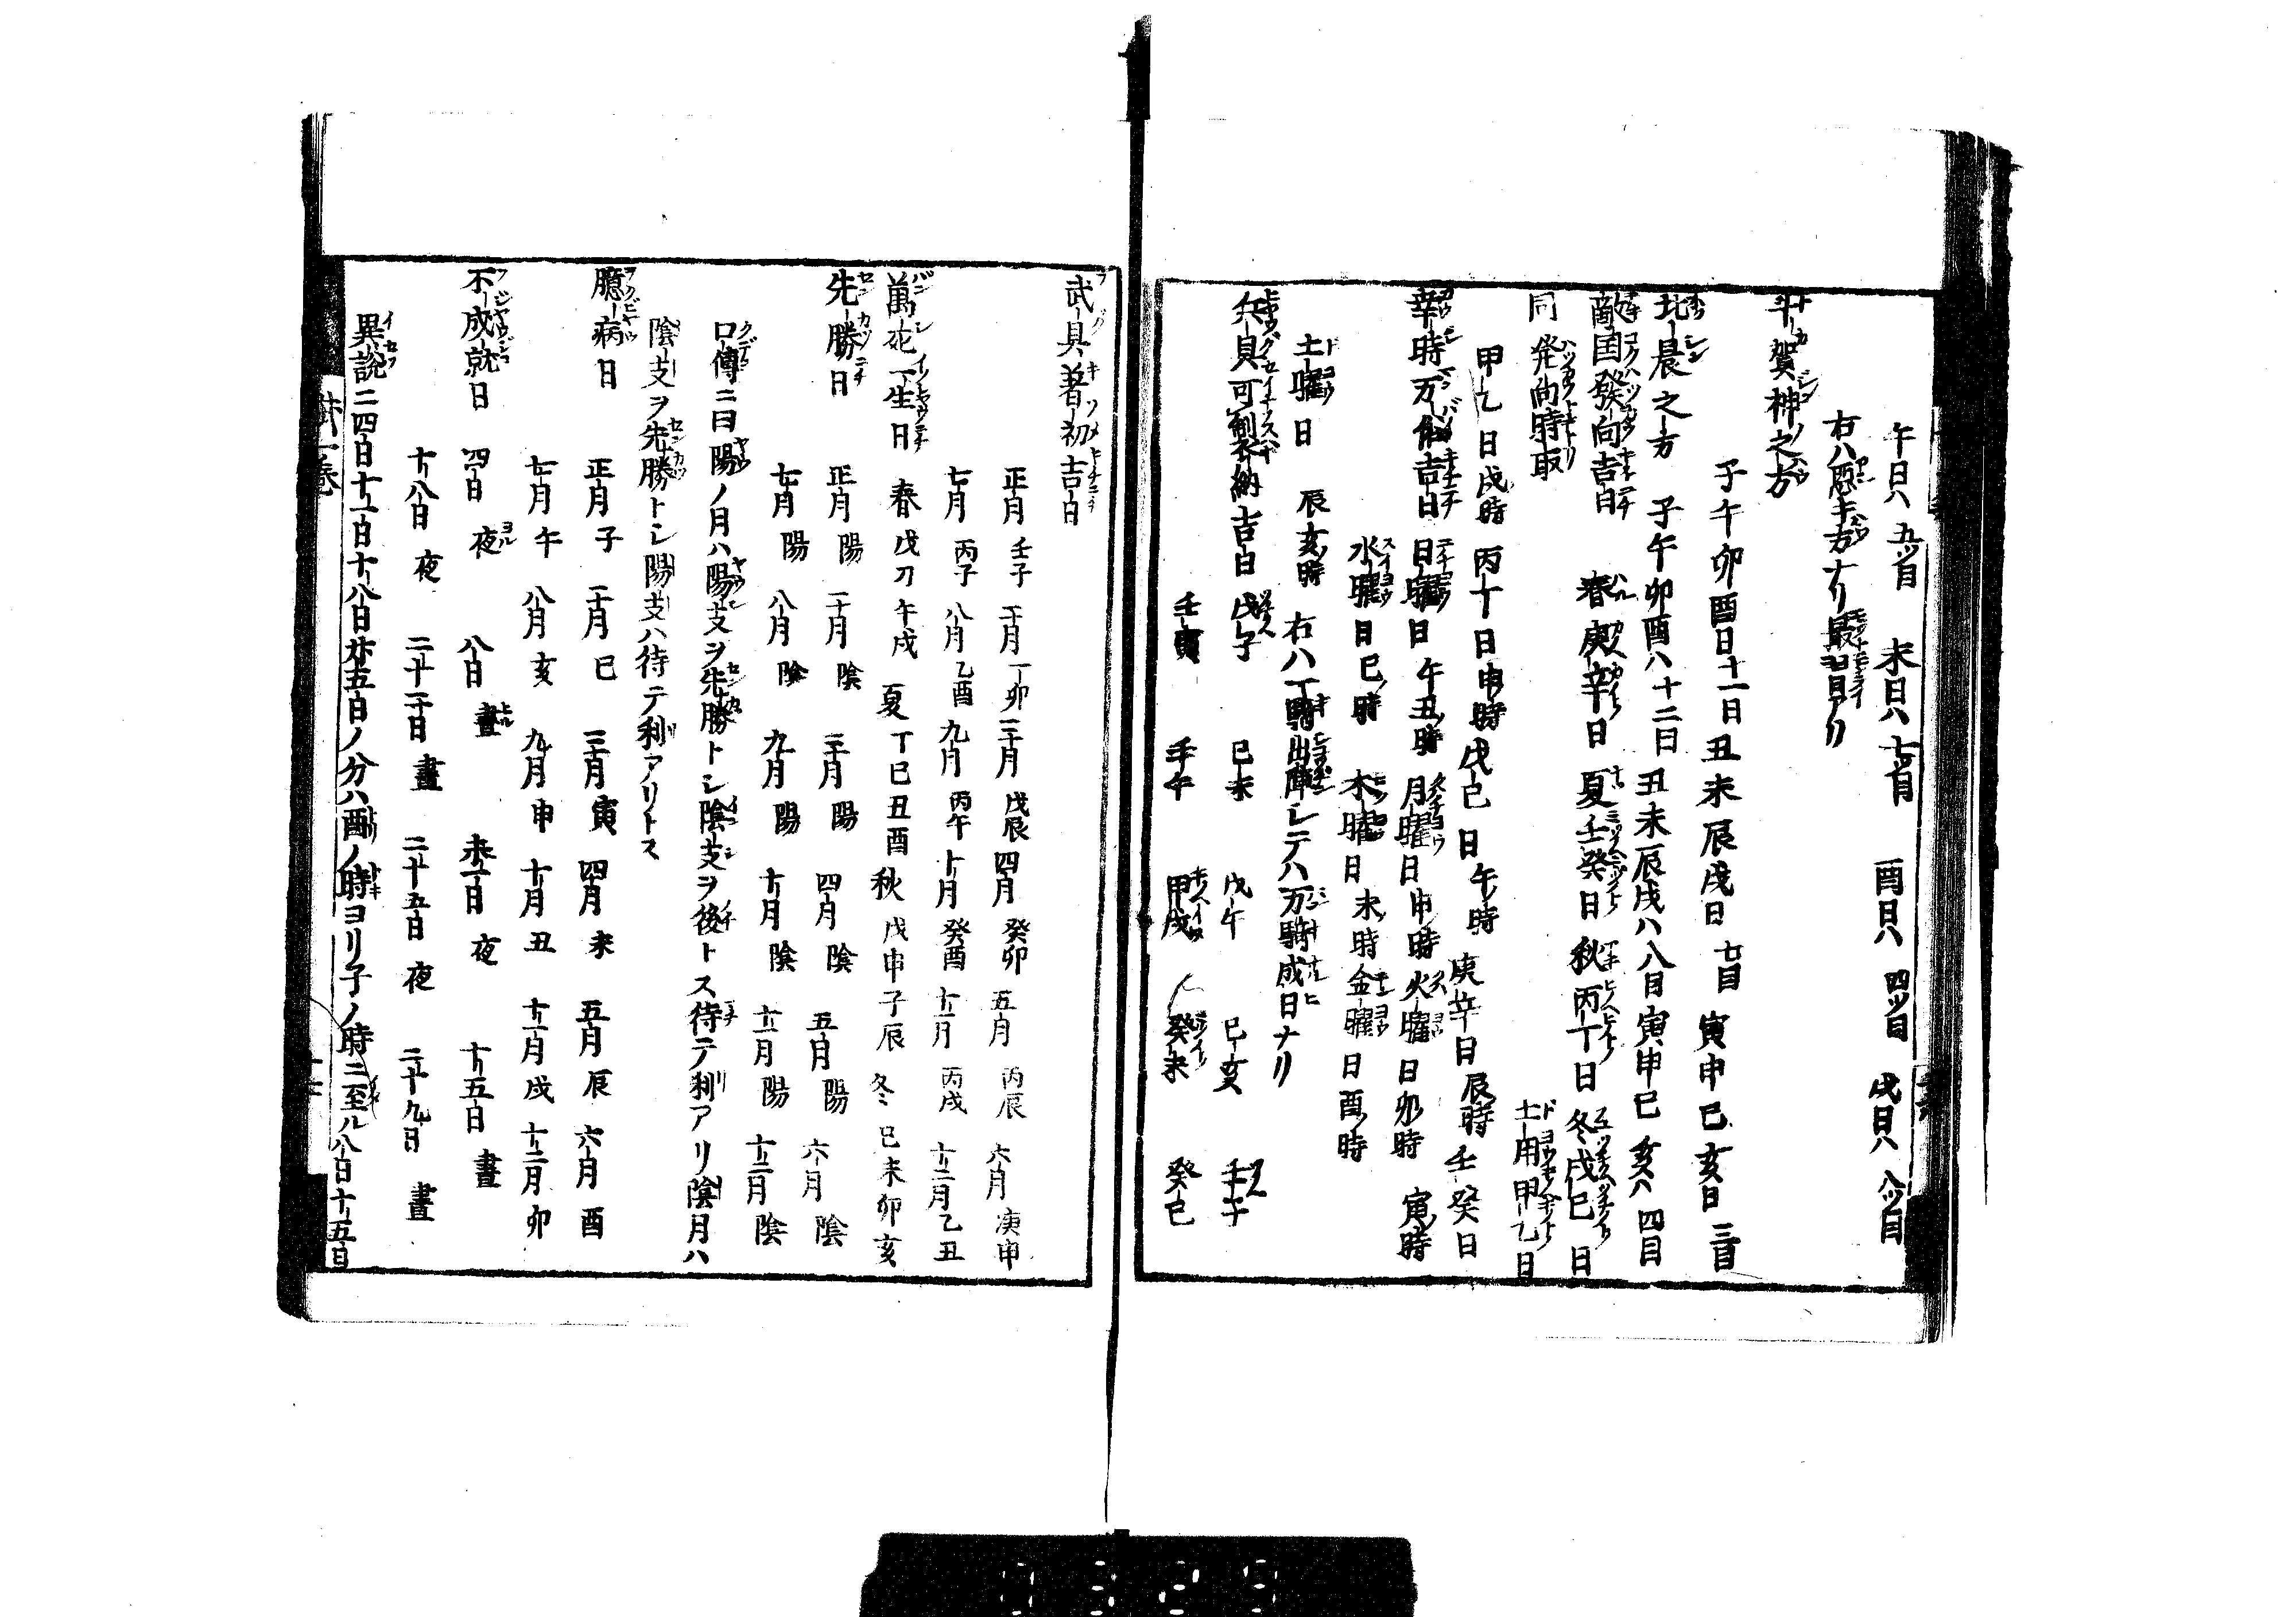 午日八 五ツ目 未日八 七ツ目 酉日八 四ツ目 戌日八 八ツ目
右八悪キ方ナリ最ヨ目ヨリ
斗賀神之方
子午卯酉日十一日丑未辰戌日 七目 寅申巳亥日 三目
北晨之方 子午卯酉八十二日 丑未辰戌八八目寅申巳亥八四目
敵国發向吉日 春庚辛日 夏壬癸日 秋丙丁日 冬戊巳日
同発向時取 土用甲乙日
甲乙日戌時 丙丁日申時 戊巳日午時 庚辛日辰時 壬癸日
寅時
幸時万倍吉日 日曜日午丑時 月曜日申時 火曜日卯時
水曜日巳時 木曜日未時 金曜日酉時
土曜日 辰亥時 右八丁騎出庫レテハ万騎成日ナリ
兵具可製納吉日 戊子 巳未 戊午 巳亥 壬子
壬寅 壬午 甲戌 癸未 癸巳
武具著初吉日
正月 壬子 二月 丁卯 三月 戊辰 四月 癸卯 五月 丙辰 六月 庚申
七月 丙子 八月 乙酉 九月 丙午 十月 癸酉 十一月 丙戌 十二月 乙丑
萬花下生日 春 戊刀午戌 夏 丁巳丑酉 秋 戊申子辰 冬 巳未卯亥
先勝日 正月 陽 二月 陰 三月 陽 四月 陰 五月 陽 六月 陰
七月 陽 八月 陰 九月 陽 十月 陰 十一月 陽 十二月 陰
口傳ニ曰陽ノ月ハ陽支ヲ先勝トシ陰支ヲ後トス待テ利アリ陰月ハ
陰支ヲ先勝トシ陽支ハ待テ利アリトス
臆病日 正月 子 二月 巳 三月 寅 四月 未 五月 辰 六月 酉
七月 午 八月 亥 九月 申 十月 丑 十一月 戌 十二月 卯
不成就日 四日 夜 八日 晝 十一日 夜 十五日 晝
十八日 夜 二十二日 晝 二十五日 夜 二十九日 晝
異説ニ四日十一日十八日廿五日ノ分ハ酉ノ時ヨリ子ノ時ニ至ル八日十五日